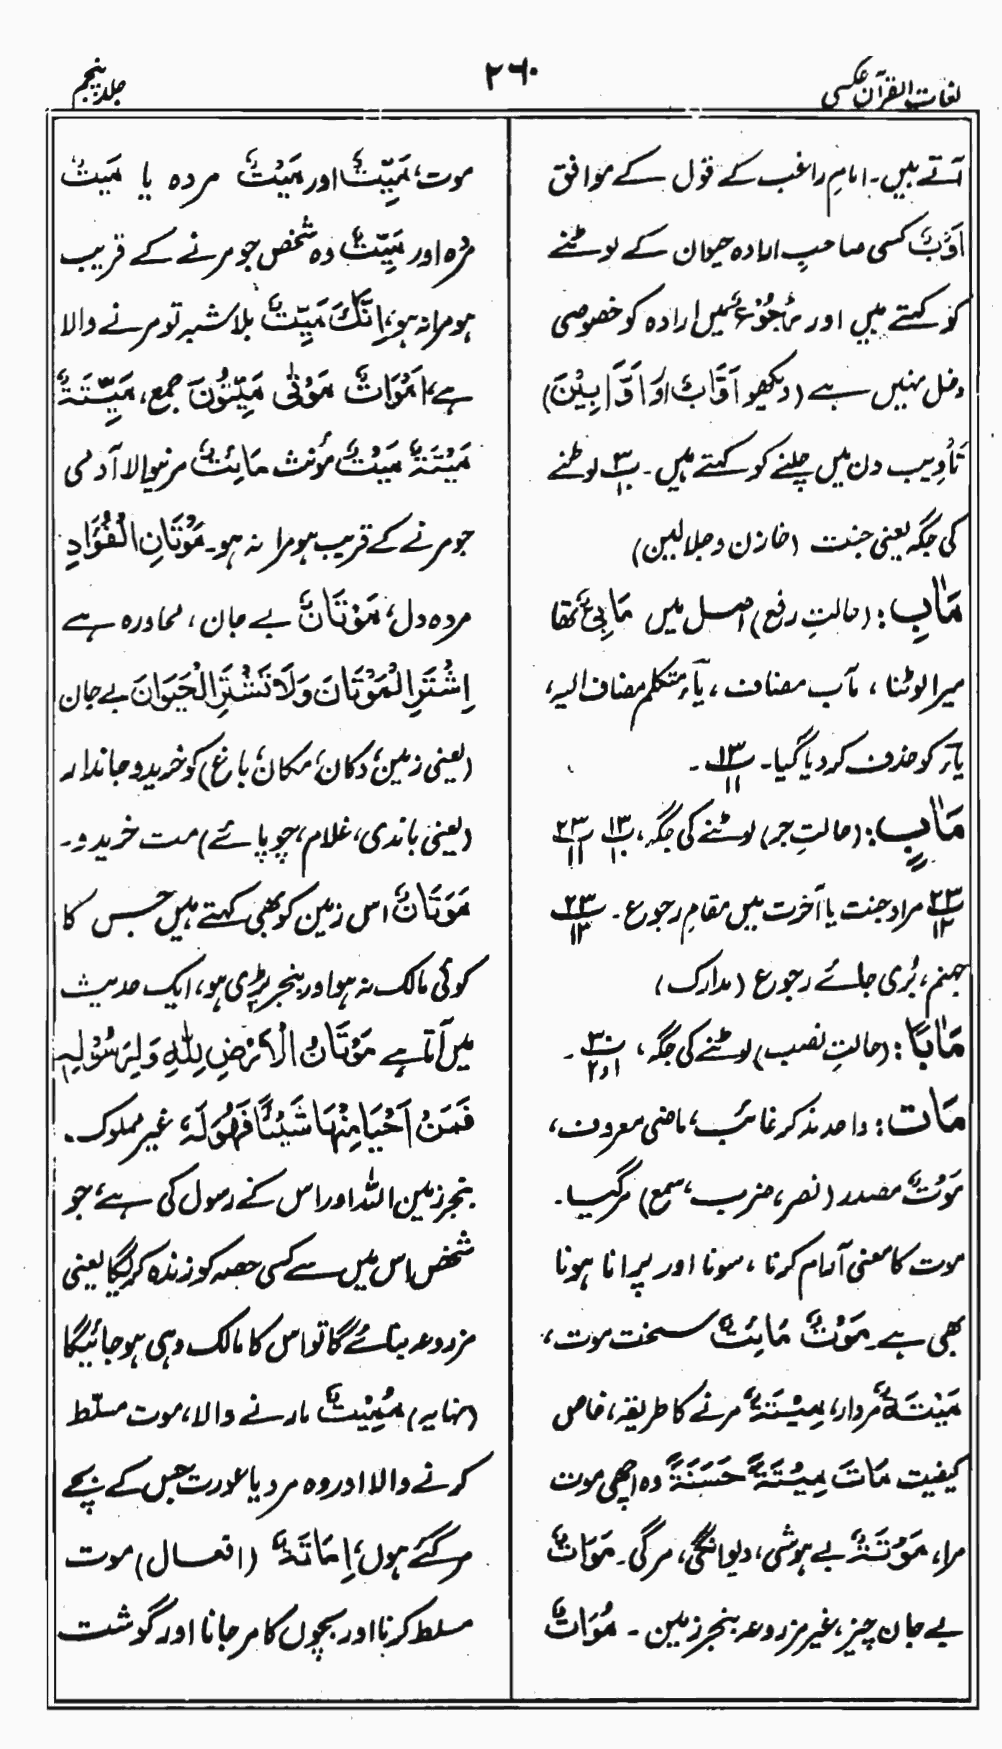 لغات القرآن عکسی
۲۶۰
جلد پنجم
آتے ہیں۔ امام راغب کے قول کے موافق
اَوْبٌ کسی صاحبِ ارادہ حیوان کے لوٹنے
کو کہتے ہیں اور رُجُوْعٌ میں ارادہ کو خصوصی
دخل نہیں ہے (دیکھو اَوَّابٌ اور اَوَّابِیْنَ)
تَاْوِیب دن میں چلنے کو کہتے ہیں۔ لوٹنے
کی جگہ یعنی جنت (خازن و جلالین)
مَاٰبِ: (حالتِ رفع) اصل میں مَاٰبِیْ تھا
میرا لوٹنا، مآب مضاف، یآء متکلم مضاف الیہ،
یآء کو حذف کر دیا گیا۔ ۱۳/۱۱۔
مَاٰبٍ: (حالتِ جر) لوٹنے کی جگہ، ۳/۱۰ ۲۳/۱۱
۲۳/۱۲ مراد جنت یا آخرت میں مقامِ رجوع۔ ۲۳/۱۳
جہنم، بُری جائے رجوع (مدارک)
مَاٰبًا: (حالتِ نصب) لوٹنے کی جگہ، ۳۰/۱و۲۔
مَاتَ: واحد مذکر غائب، ماضی معروف،
مَوْتٌ مصدر (نصر، ضرب، سمع) مرگیا۔
موت کا معنی آرام کرنا، سونا اور پرانا ہونا
بھی ہے۔ مَوْتٌ مَائِتٌ سخت موت،
مَیْتَۃٌ مردار، مِیْتَۃٌ مرنے کا طریقہ، خاص
کیفیت مَاتَ مِیْتَۃً حَسَنَۃً وہ اچھی موت
مرا، مَوْتَۃٌ بے ہوشی، دیوانگی، مرگی۔ مَوَاتٌ
بے جان چیز، غیر مزروعہ بنجر زمین۔ مُوَاتٌ
موت، مَیِّتٌ اور مَیْتٌ مردہ یا مَیْتٌ
مردہ اور مَیِّتٌ وہ شخص جو مرنے کے قریب
ہو مرا نہ ہو، اِنَّکَ مَیِّتٌ بلا شبہ تو مرنے والا
ہے، اَمْوَاتٌ مَوْتٰی مَیِّتُوْنَ جمع، مَیِّتَۃٌ
مَیْتَۃٌ مَیْتٌ مؤنث مَائِتٌ مرنیوالا آدمی
جو مرنے کے قریب ہو مرا نہ ہو۔ مَوْتَانِ الْفُؤَادِ
مردہ دل، مَوْتَانٌ بے جان، محاورہ ہے
اِشْتَرِ الْمَوْتَانَ وَلَا تَشْتَرِ الْحَیَوَانَ بے جان
(یعنی زمین، دکان، مکان، باغ) کو خریدو جاندار
(یعنی باندی، غلام، چوپائے) مت خریدو۔
مَوَتَانٌ اس زمین کو بھی کہتے ہیں جس کا
کوئی مالک نہ ہو اور بنجر پڑی ہو، ایک حدیث
میں آتا ہے مَوَتَانُ الْاَرْضِ لِلّٰہِ وَلِرَسُوْلِہٖ
فَمَنْ اَحْیَا مِنْہَا شَیْئًا فَہُوَ لَہٗ غیر مملوک
بنجر زمین اللہ اور اس کے رسول کی ہے، جو
شخص اس میں سے کسی حصہ کو زندہ کریگا یعنی
مزروعہ بنائے گا تو اس کا مالک وہی ہو جائیگا
(نہایہ) مُمِیْتٌ مارنے والا، موت مسلّط
کرنے والا اور وہ مرد یا عورت جس کے بچے
مرگئے ہوں، اِمَاتَۃٌ (افعال) موت
مسلط کرنا اور بچوں کا مر جانا اور گوشت